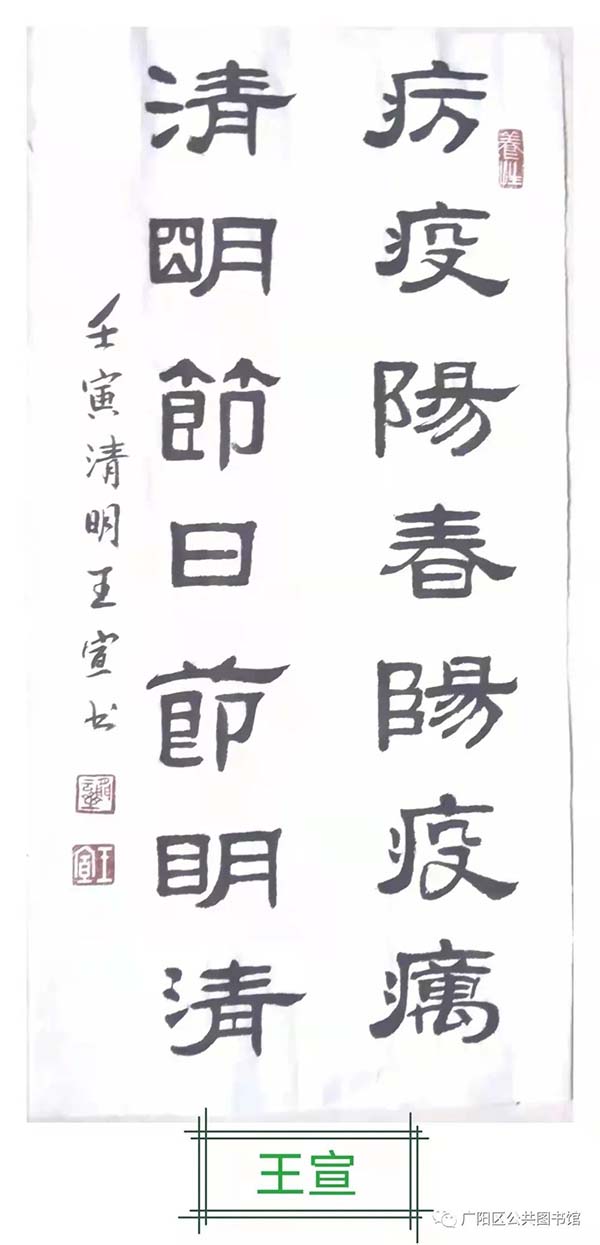 養性
疠疫陽春陽疫癘
清朙節日莭眀清
壬寅清明王宣书
王宣
王宣
广阳区公共图书馆